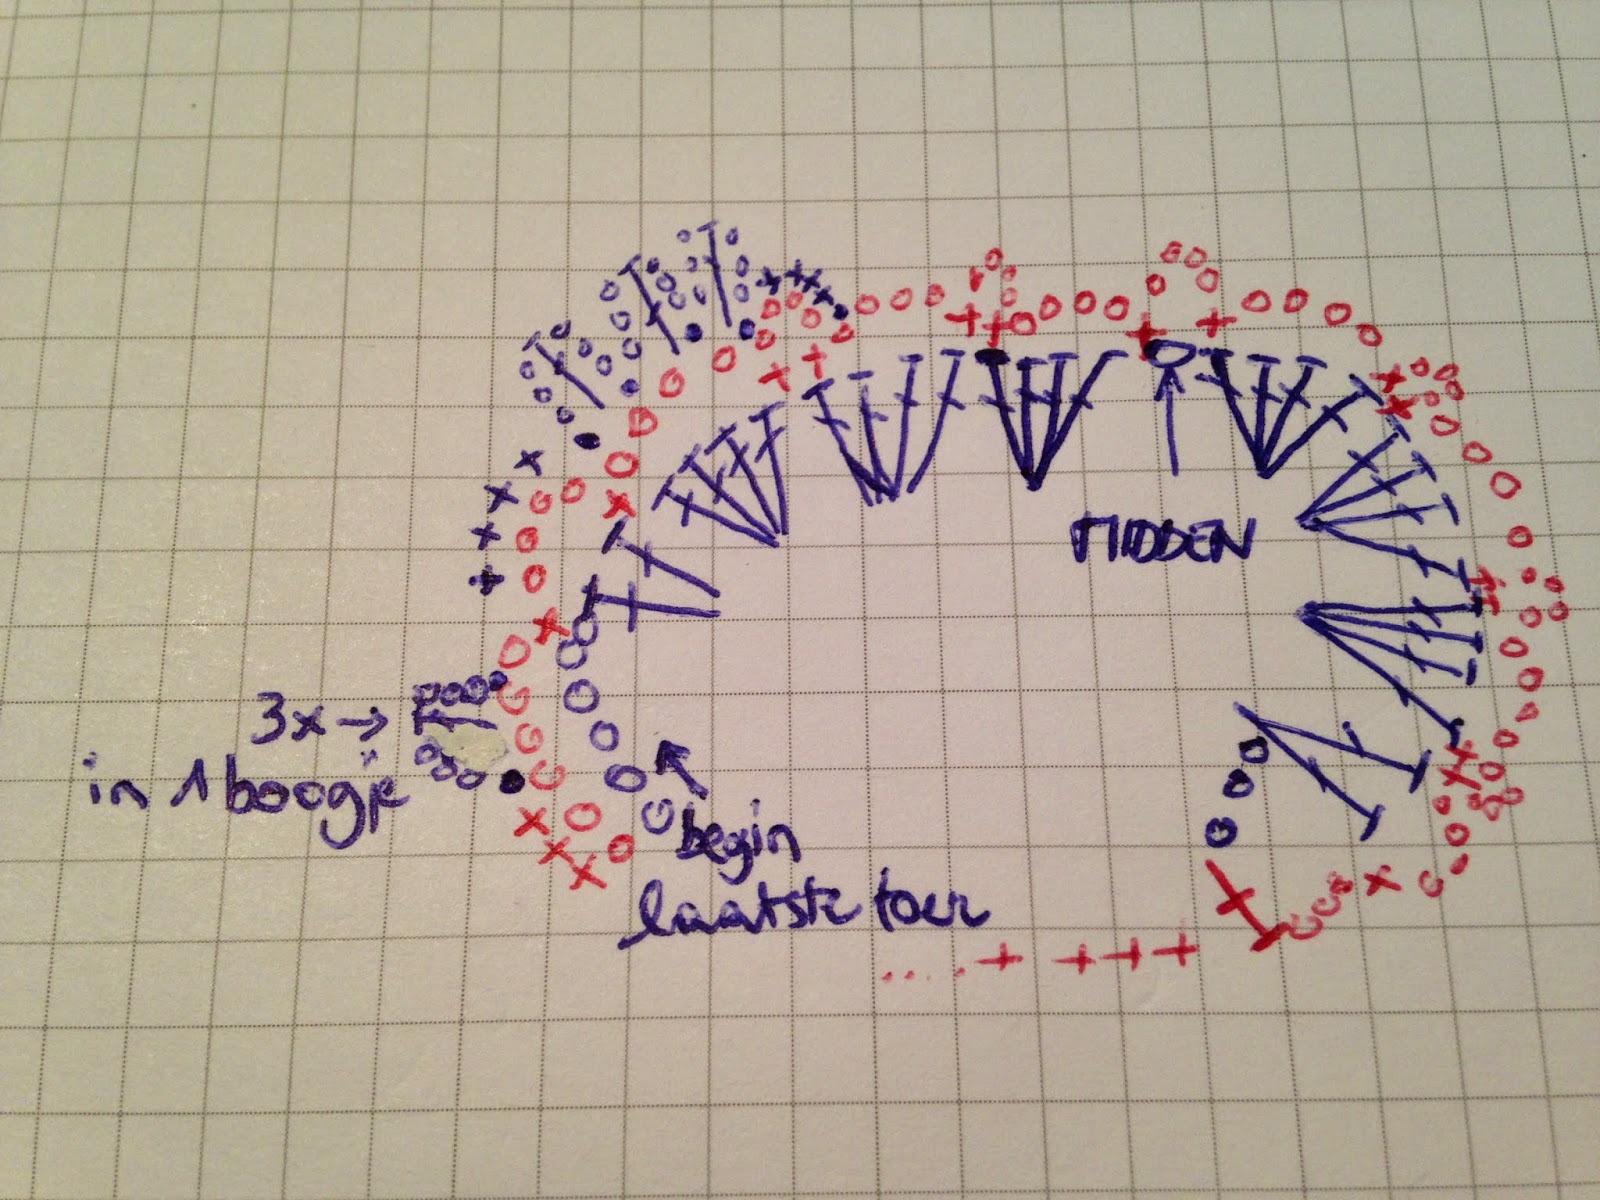 MIDDEN
3x →
in 1 boogje
begin
laatste toer